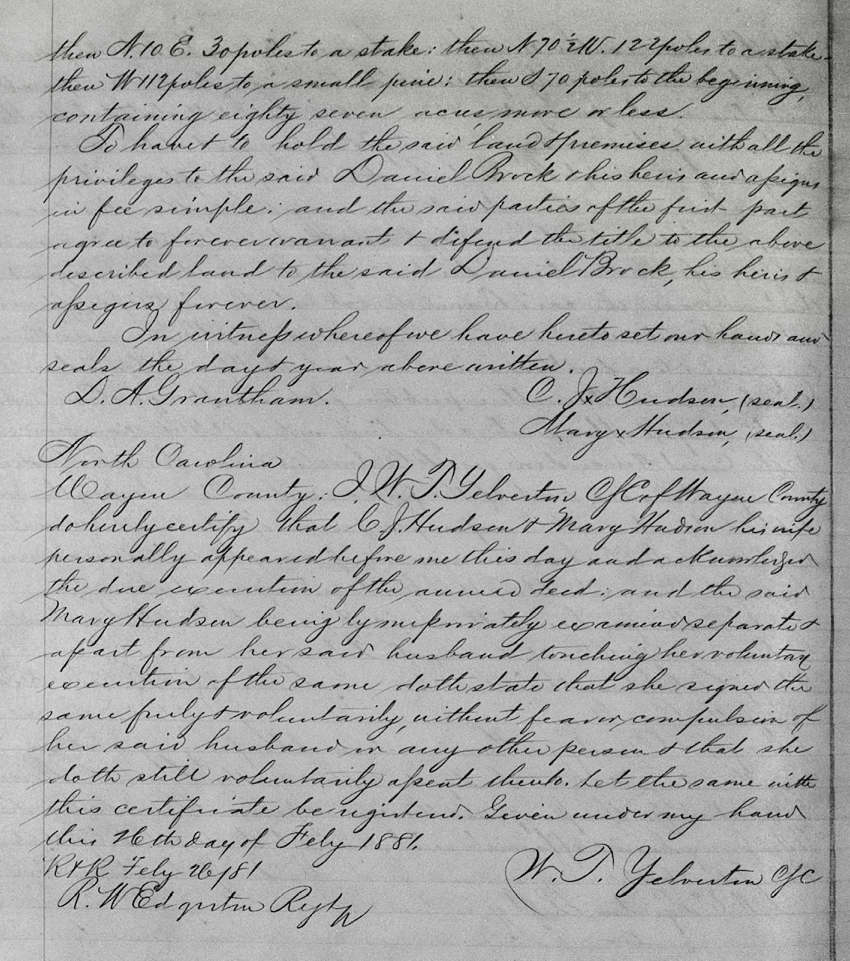 then N. 10 E. 30 poles to a stake: then N 70 1/2 W. 122 poles to a stake
then W 112 poles to a small pine: then S 70 poles to the beginning,
containing eighty seven acres, more or less.
To have & to hold the said land & premises with all the
privileges to the said Daniel Brock & his heirs and assigns
in fee simple: and the said parties of the first part
agree to forever warrant & defend the title to the above
described land to the said Daniel Brock, his heirs &
assigns forever.
In witness whereof we have hereto set our hands and
seals the day & year above written.
D. A. Grantham. C. J. x Hudson, (seal.)
Mary x Hudson, (seal.)
North Carolina
Wayne County: I, W. T. Yelverton CSC of Wayne County
do hereby certify that C J. Hudson & Mary Hudson his wife
personally appeared before me this day and acknowledged
the due execution of the annexed deed: and the said
Mary Hudson being by me privately examined separate &
apart from her said husband touching her voluntary
execution of the same doth state that she signed the
same freely & voluntarily, without fear or compulsion of
her said husband or any other person & that she
doth still voluntarily assent thereto. Let the same with
this certificate be registered. Given under my hand
this 26th day of Feby 1881.
R & R Feby 26/81 W. T. Yelverton CSC
R. W Edgerton Regtr